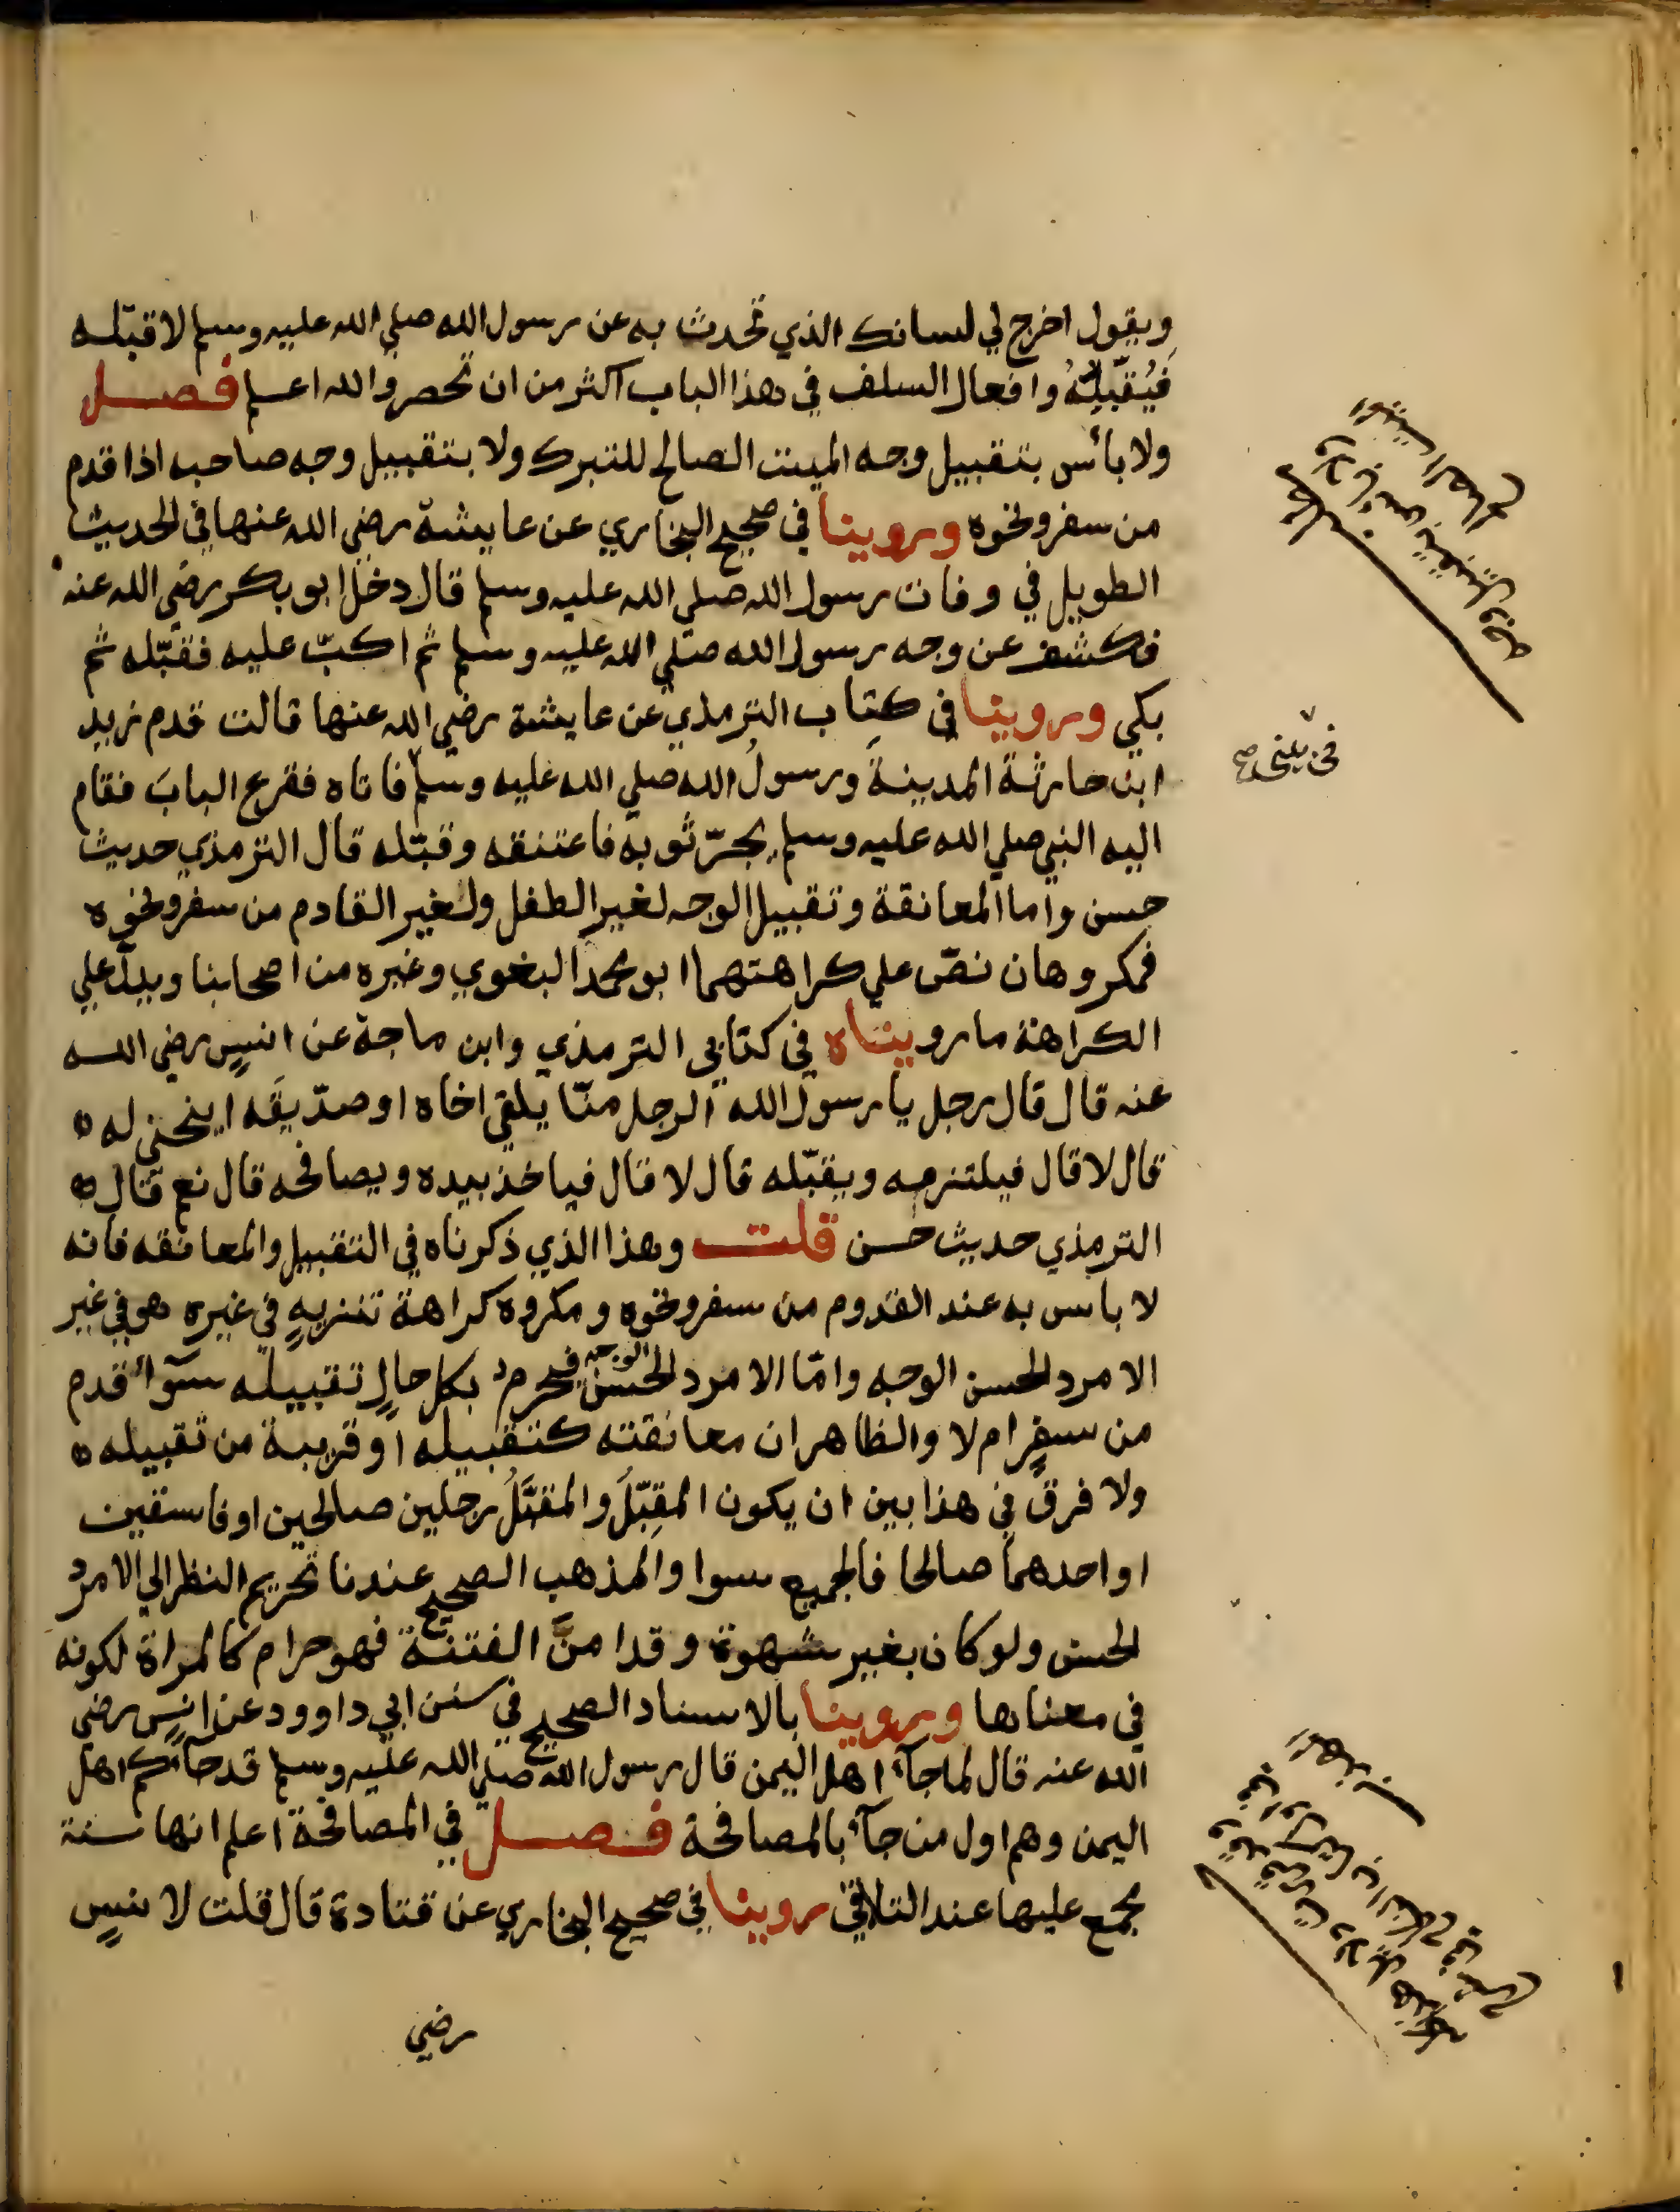 ويقول اخرج لي لسانك الذي تحدث به عن رسول الله صلي الله عليه وسلم لاقبّله
فَيُقَبِّلُهُ وافعال السلف في هذا الباب اكثر من ان تحصر والله اعلم فصل
ولا بأس بتقبيل وجه الميت الصالح للتبرك ولا بتقبيل وجه صاحبه اذا قدم
من سفر ونحوه وروينا في صحيح البخاري عن عايشة رضي الله عنها في الحديث
الطويل في وفات رسول الله صلي الله عليه وسلم قال دخل ابو بكر رضي الله عنه
فكشف عن وجه رسول الله صلي الله عليه وسلم ثم اكبّ عليه فقبّله ثم
بكي وروينا في كتاب الترمذي عن عايشة رضي الله عنها قالت قدم زيد
ابن حارثة المدينة ورسولُ الله صلي الله عليه وسلم فاتاه فقرع البابَ فقام
اليه النبي صلي الله عليه وسلم يجرّ ثوبه فاعتنقه وقبّله قال الترمذي حديث
حسن واما المعانقة وتقبيل الوجه لغير الطفل ولغير القادم من سفر ونحوه
فمكروهان نصّ علي كراهتهما ابو محمد البغوي وغيره من اصحابنا ويدلّ علي
الكراهة ما رويناه في كتابي الترمذي وابن ماجة عن انسٍ رضي الله
عنه قال قال رجل يا رسول الله الرجل منّا يلقي اخاه او صدّيقَه اينحني له
قال لا قال فيلتزمه ويقبّله قال لا قال فياخذ بيده ويصافحه قال نعم قال
الترمذي حديث حسن قلت وهذا الذي ذكرناه في التقبيل والمعانقه فانه
لا باس به عند القدوم من سفر ونحوه ومكروه كراهة تنزيهٍ في غيره هو في غير
الامرد الحسن الوجه وامّا الامرد الحسن الوجه فيحرم بكل حالٍ تقبيله سوآء قدم
من سفرٍ ام لا والظاهر ان معانقته كتقبيله او قريبة من تقبيله
ولا فرق في هذا بين ان يكون المقبِّلُ والمقبَّلُ رجلين صالحين او فاسقين
او احدهما صالحا فالجميع سوا والمذهب الصحيح عندنا تحريم النظر الي الامرد
الحسن ولو كان بغير شهوة وقد امنَّ الفتنة فهو حرام كالمراة لكونه
في معناها وروينا بالاسناد الصحيح في سنن ابي داوود عن انسٍ رضي
الله عنه قال لما جآء اهل اليمن قال رسول الله صلي الله عليه وسلم قد جآءكم اهل
اليمن وهم اول من جآء بالمصافحة فصل في المصافحة اعلم انها سنة
مجمع عليها عند التلاقي روينا في صحيح البخاري عن قتادة قال قلت لانسٍ
رضي
في بيتي صح